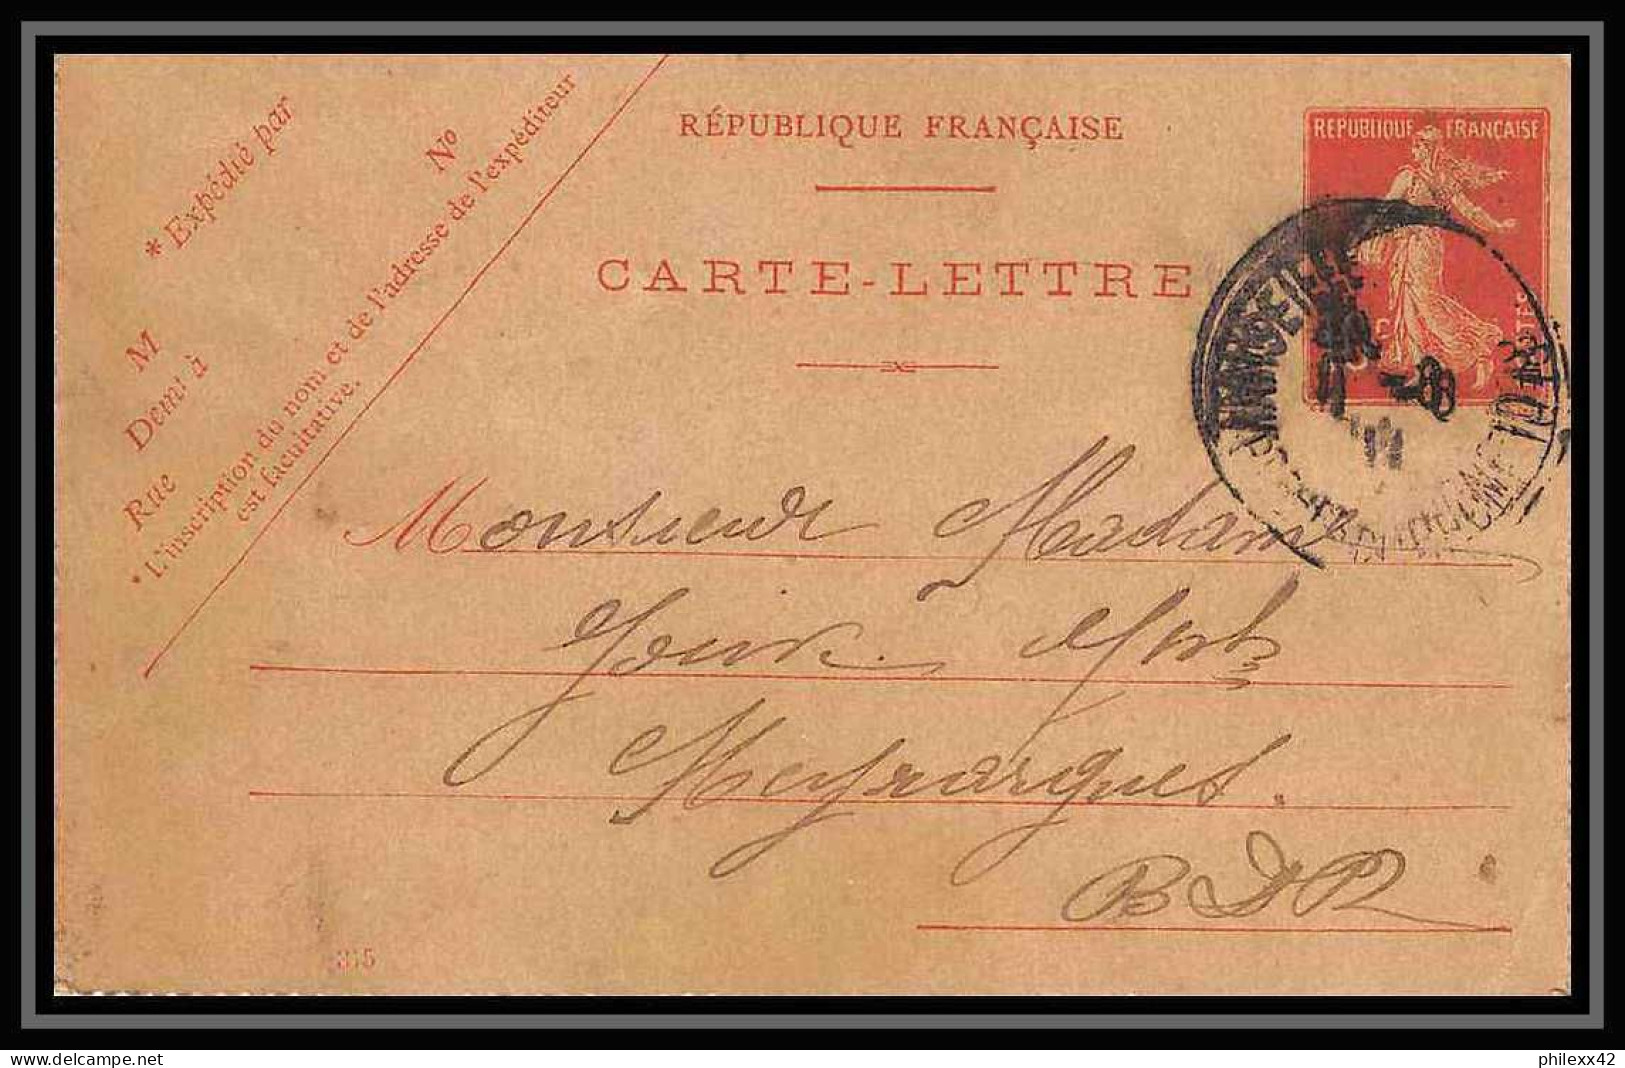 * Expédié par
M
Nº
Demt à
Rue
* L'inscription du nom et de l'adresse de l'expéditeur
est facultative.
RÉPUBLIQUE FRANÇAISE
CARTE-LETTRE
REPUBLIQUE FRANÇAISE
POSTES
MARSEILLE
Monsieur Madame
Meyrargues.
BDR
315
philexx42